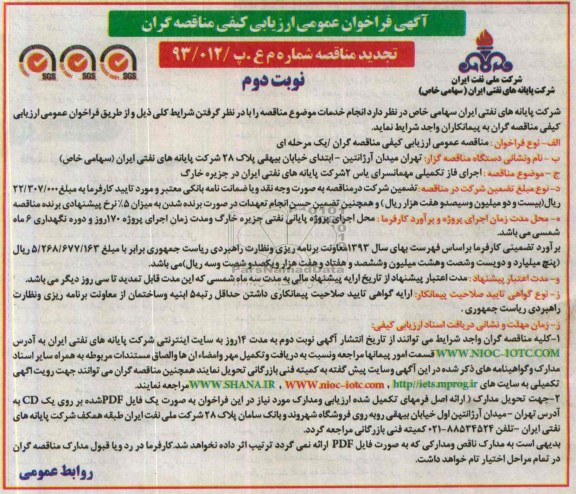 آگهی فراخوان عمومی ارزیابی کیفی مناقصه گران
تجدید مناقصه شماره م ع .پ /۹۳/۰۱۲
نوبت دوم
شرکت ملی نفت ایران
شرکت پایانه های نفتی ایران (سهامی خاص)
SGS SGS SGS
شرکت پایانه های نفتی ایران سهامی خاص در نظر دارد انجام خدمات موضوع مناقصه را با در نظر گرفتن شرایط کلی ذیل و از طریق فراخوان عمومی ارزیابی
کیفی مناقصه گران به پیمانکاران واجد شرایط نماید.
الف- نوع فراخوان : مناقصه عمومی ارزیابی کیفی مناقصه گران /یک مرحله ای
ب - نام ونشانی دستگاه مناقصه گزار: تهران میدان آرژانتین - ابتدای خیابان بیهقی پلاک ۲۸ شرکت پایانه های نفتی ایران (سهامی خاص)
ج - موضوع مناقصه : اجرای فاز تکمیلی مهمانسرای یاس ۲شرکت پایانه های نفتی ایران در جزیره خارگ
د- نوع مبلغ تضمین شرکت در مناقصه: تضمین شرکت درمناقصه به صورت وجه نقد ویا ضمانت نامه بانکی معتبر و مورد تایید کارفرما به مبلغ ۲۲/۳۰۷/۰۰۰
ریال(بیست و دو میلیون وسیصدو هفت هزار ریال ) و همچنین تضمین حسن انجام تعهدات در صورت برنده شدن به میزان ۵% نرخ پیشنهادی برنده مناقصه
ه- محل مدت زمان اجرای پروژه و برآورد کارفرما : محل اجرای پروژه پایانی نفتی جزیره خارگ ومدت زمان اجرای پروژه ۱۷۰روز و دوره نگهداری ۶ ماه
شمسی می باشد.
برآورد تضمینی کارفرما براساس فهرست بهای سال ۱۳۹۳معاونت برنامه ریزی ونظارت راهبردی ریاست جمهوری برابر با مبلغ ۵/۲۶۸/۶۷۷/۱۶۳ ریال
(پنج میلیارد و دویست وشصت وهشت میلیون وششصد و هفتاد و هفت هزار ویکصدو شصت وسه ریال)می باشد.
و- مدت اعتبار پیشنهاد : مدت اعتبار پیشنهاد از تاریخ ارایه پیشنهاد مالی به مدت سه ماه شمسی که این مدت قابل تمدید تا سی روز دیگر می باشد.
ز- نوع گواهی تایید صلاحیت پیمانکار: ارایه گواهی تایید صلاحیت پیمانکاری داشتن حداقل رتبه۵ ابنیه وساختمان از معاونت برنامه ریزی ونظارت
راهبردی ریاست جمهوری .
ز- زمان مهلت و نشانی دریافت اسناد ارزیابی کیفی:
۱-کلیه مناقصه گران واجد شرایط می توانند از تاریخ انتشار آگهی نوبت دوم به مدت ۱۴روز به سایت اینترنتی شرکت پایانه های نفتی ایران به آدرس
WWW.NIOC-IOTC.COM قسمت امور پیمانها مراجعه ونسبت به دریافت وتکمیل مهر وامضاء ان ها والصاق مستندات مربوطه به همراه سایر اسناد
مدارک وگواهینامه های ذکر شده در این آگهی وسایت پیش گفته به کمیته فنی بازرگانی تحویل نمایند همچنین مناقصه گران می توانند جهت رویت آگهی
تکمیلی به سایت های WWW.SHANA.IR , WWW.nioc-iotc.com , http://iets.mprog.ir مراجعه نمایند.
۲-جهت تحویل مدارک ( ارائه اصل فرمهای تکمیل شده ارزیابی ومدارک مورد نیاز در این فراخوان به صورت یک فایل PDFشده بر روی یک CD به
آدرس تهران -میدان آرژانتین اول خیابان بیهقی روبه روی فروشگاه شهروند وبانک سامان پلاک ۲۸ شرکت ملی نفت ایران طبقه همکف شرکت پایانه های
نفتی ایران -تلفن ۸۸۵۳۴۵۲۴-۰۲۱ کمیته فنی بازرگانی مراجعه گردد.
بدیهی است به مدارک ناقص ومدارکی که به صورت فایل PDF ارائه نمی گردد ترتیب اثر داده نخواهد شد.کارفرما در رد ویا قبول مدارک مناقصه گران
در تمام مراحل اختیار تام خواهد داشت.
روابط عمومی
ParsNamadData